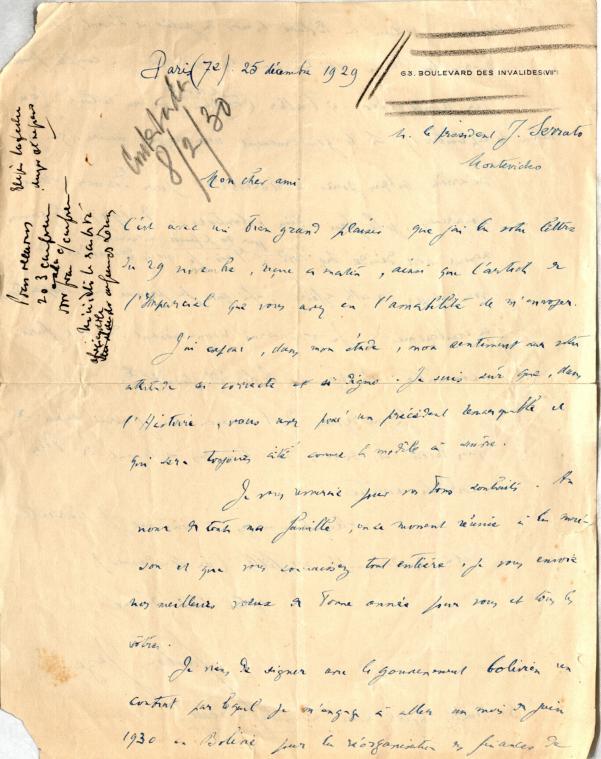 Paris (7e) 25 décembre 1929
63. BOULEVARD DES INVALIDES (VIIe)
Contestada
8/2/30
M. le président J. Serrato
Montevideo
Mon cher ami
C'est avec un bien grand plaisir que j'ai lu votre lettre
du 29 novembre, reçue ce matin, ainsi que l'article de
l'Imparcial que vous avez eu l'amabilité de m'envoyer.
J'ai exposé, dans mon étude, mon sentiment sur votre
attitude si correcte et si digne. Je suis sûr que, dans
l'Histoire, vous avez posé un précédent remarquable et
qui sera toujours cité comme le modèle à suivre.
Je vous remercie pour vos bons souhaits. Au
nom de toute ma famille, en ce moment réunie à la mai-
son et que vous connaissez tout entière, je vous envoie
nos meilleurs vœux de bonne année pour vous et tous les
vôtres.
Je viens de signer avec le gouvernement bolivien un
contrat par lequel je m'engage à aller un mois de juin
1930 en Bolivie pour la réorganisation des finances de